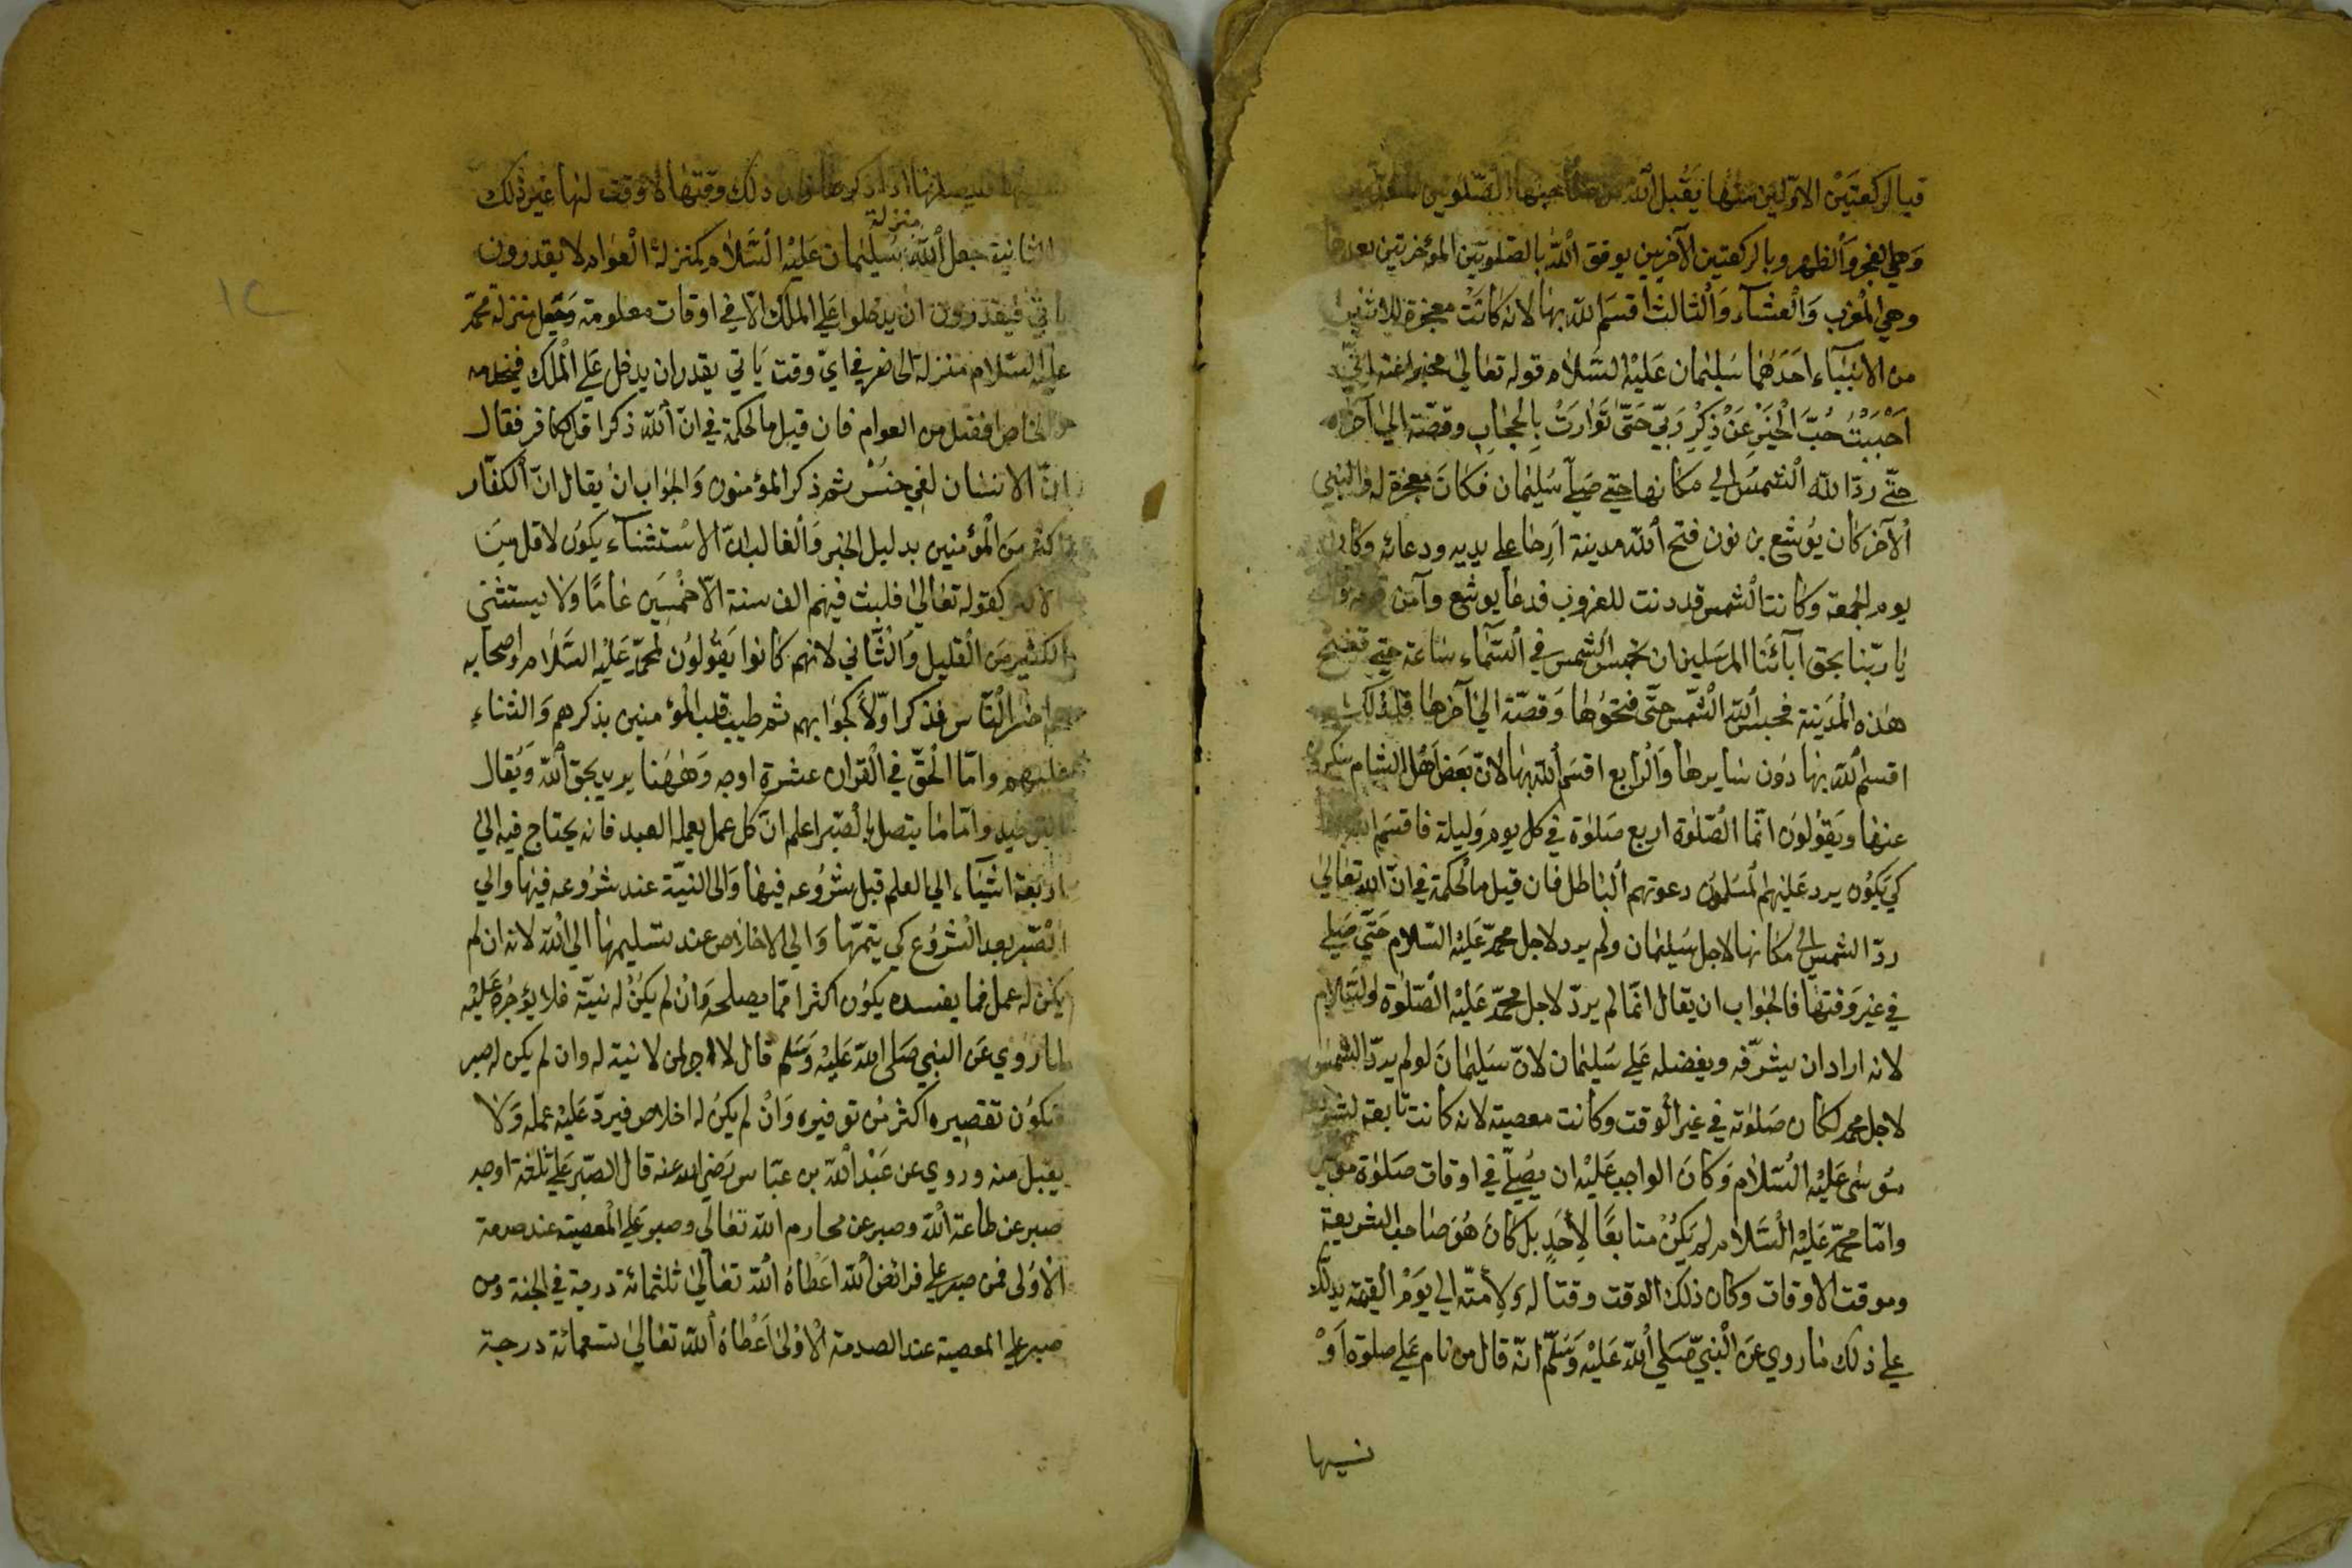 فبالركعتين الاوّلين منها يقبل الله من صاحبها الصّلوتين
وهي الفجر والظهر وبالركعتين الآخريين يوفق الله بالصلوتين المؤخرتين بعدها
وهي المغرب والعشآء والثالث اقسم الله بها لانه كانت معجزة للاثنين
من الانبيآء احدهما سليمان عليه السلام قوله تعالى مخبرا عنه انّي
اَحْبَبْتُ حُبَّ الْخَيْرِ عَنْ ذِكْرِ رَبِّي حَتَّى تَوَارَتْ بِالْحِجَابِ وقصّته الي آخرها
حتّي ردّ الله الشمس الي مكانها حتي صلّي سليمان فكان معجزة له والنبي
الآخر كان يوشع بن نون فتح الله مدينة ارحا علي يديه ودعائه وكان
يوم الجمعة وكانت الشمس قد دنت للغروب فدعا يوشع وآمن قومه وقال
يا ربّنا بحق آبائنا المرسلين ان تحبس الشمس في السّمآء ساعة حتي تفتح
هذه المدينة فحبس الله الشمس حتّى فتحوها وقصّته الي آخرها فلذلك
اقسم الله بها دون سايرها والرابع اقسم الله بها لانّ بعض اهل الشام ينكره
عنها ويقولون انّما الصّلوة اربع صلوة في كل يوم وليلة فاقسم الله بها
كي يكون يرد عليهم المسلمون دعوتهم الباطل فان قيل ما الحكمة في انّ الله تعالي
ردّ الشمس الي مكانها لاجل سليمان ولم يرد لاجل محمّد عليه السّلام حتّي صلي
في غير وقتها فالجواب ان يقال انّما لم يردّ لاجل محمّد عليه الصّلوة والسّلام
لانه اراد ان يشرّفه ويفضله علي سليمان لانّ سليمان لو لم يردّ الشمس
لاجل محمد لكان صلوته في غير الوقت وكانت معصية لانه كانت تابعة لشريعة
موسى عليه السّلام وكان الواجب عليه ان يصلّي في اوقات صلوة موسي
وامّا محمّد عليه السلام لم يكن متابعًا لاحدٍ بل كان هو صاحب الشريعة
وموقت الاوقات وكان ذلك الوقت وقتا له ولامّته الي يوم القيمة يدلّك
علي ذلك ما روي عن النبيّ صلي الله عليه وسلّم انّه قال من نام علي صلوة او
نسيها
نسيها فليصلها اذا ذكرها فان ذلك وقتها لا وقت لها غير ذلك
والثانية جعل الله منزلة سليمان عليه السّلام كمنزلة العوام لا يقدرون
يأتي فيقدرون ان يدخلوا علي الملك الّا في اوقات معلومة وجعل منزلة محمّد
عليه السّلام منزلة الخاص في ايّ وقت يأتي يقدر ان يدخل علي الملك فيخدمه
والخاص افضل من العوام فان قيل ما الحكمة في انّ الله ذكر اوّل الكافر فقال
انّ الانسان لفي خسر ثم ذكر المؤمنون والجواب ان يقال انّ الكفّار
اكثر من المؤمنين بدليل الخبر والغالب انّ الاستثنآء يكون لاقل من
الاكثر كقوله تعالي فلبث فيهم الف سنة الّا خمسين عامًا ولا يستثني
الكثير من القليل والثّاني لانهم كانوا يقولون لمحمّد عليه السّلام واصحابه
هم اخسر النّاس فذكر اوّلاً لجوابهم ثم طيب قلب المؤمنين بذكرهم والثناء
عليهم وامّا الحقّ في القران عشرة اوجه وههنا يريد بحق الله ويقال
بالتوحيد وامّا ما يتصل بالصّبر اعلم انّ كل عمل يعمله العبد فانه يحتاج فيه الي
اربعة اشيآء الي العلم قبل شروعه فيها والى النيّة عند شروعه فيها والي
الصّبر بعد الشروع كي يتمّها والي الاخلاص عند تسليمها الي الله لانه ان لم
يكن له عمل فما يفسده يكون اكثر ممّا يصلحه وان لم يكن له نيّة فلا يؤجره عليه
لما روي عن النبي صلى الله عليه وسلم قال لا اجر لمن لا نية له وان لم يكن له صبر
فيكون تقصيره اكثر من توفيره وان لم يكن له اخلاص فيردّ عليه عمله ولا
يقبل منه وروي عن عبد الله بن عبّاس رضي الله عنه قال الصّبر علي ثلثة اوجه
صبر عن طاعة الله وصبر عن محارم الله تعالي وصبر علي المعصية عند صدمة
الاولى فمن صبر علي فرائض الله اعطاهُ الله تعالي ثلثمائة درجة في الجنة ومن
صبر علي المعصية عند الصدمة الاولى اعطاهُ الله تعالي تسعمائة درجة
١٢